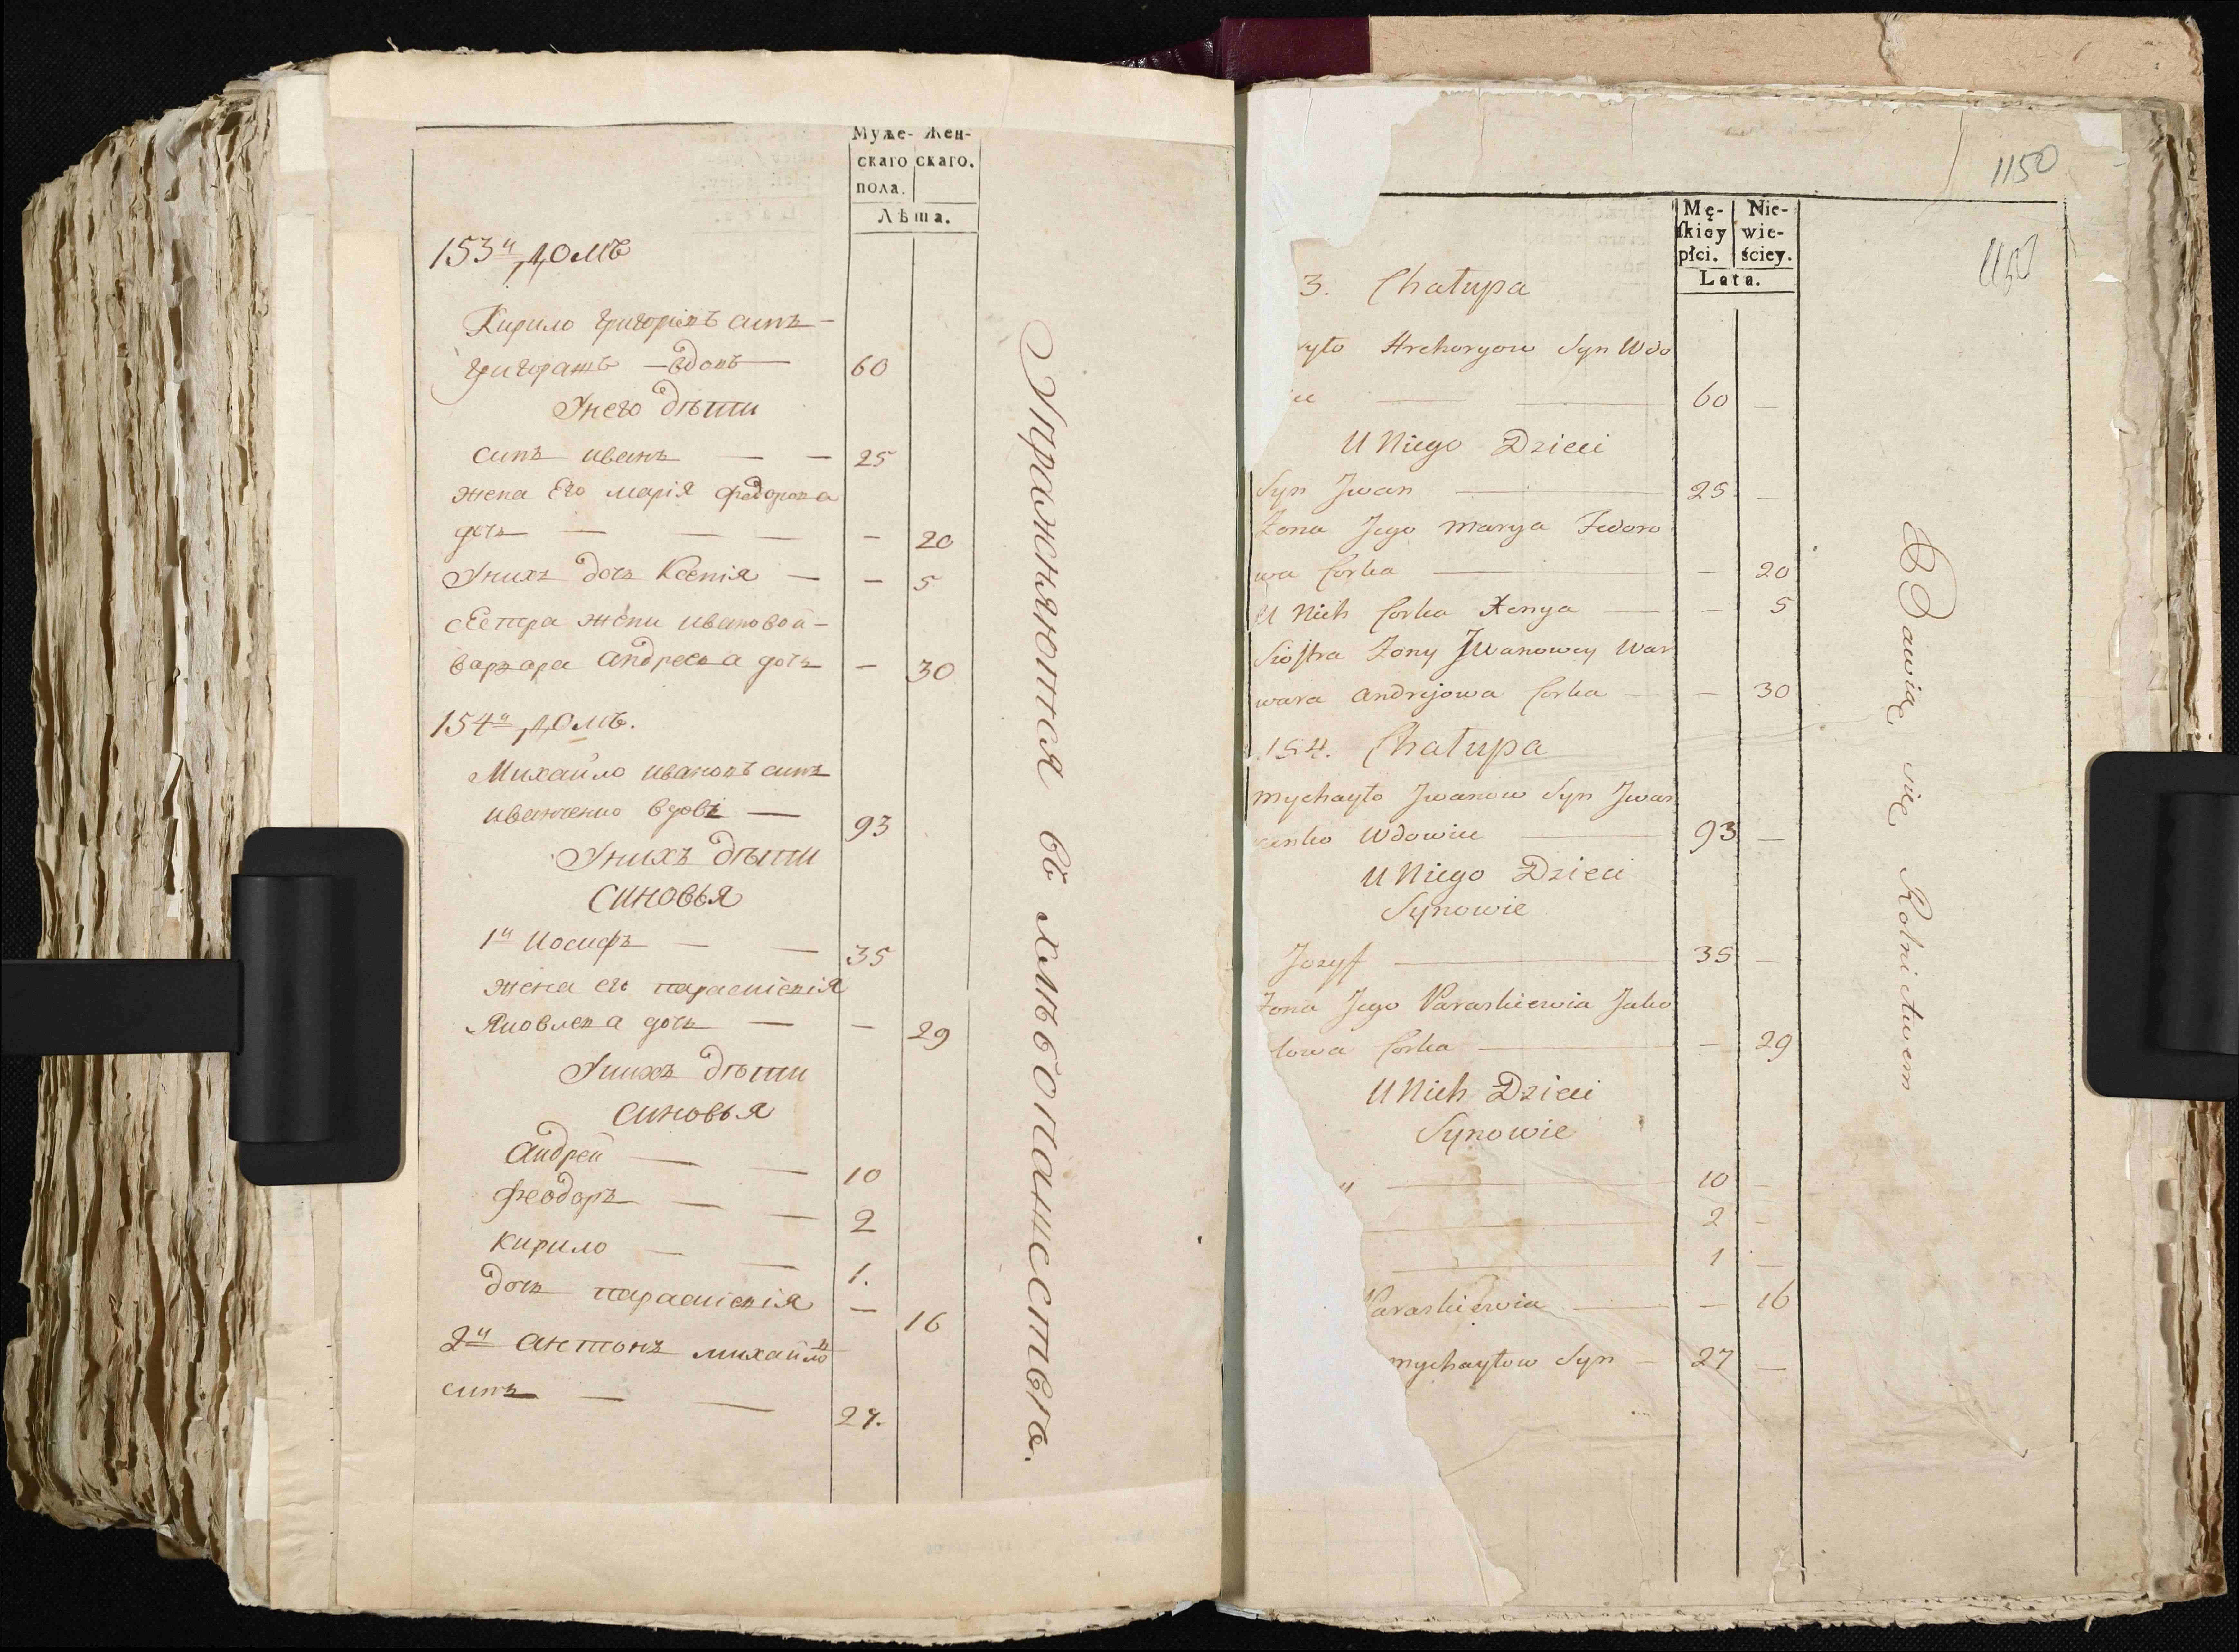 Муже- Жен-
скаго скаго.
пола.
Лѣта.
153й домъ
Кирило григорієвъ синъ —
григоращъ — вдовъ — 60
Унего дѣти
синъ иванъ — — 25
жена Его марія федорова
дочъ — — — — 20
Унихъ дочъ Ксенія — — 5
сЕстра жени ивановой —
варвара андреева дочъ — 30
154й домъ.
Михайло ивановъ синъ
иванченко вдовъ — 93
Унихъ дѣти
синовья
1й Иосифъ — — 35
жена его параскієвія
Яковлева дочъ — — 29
Унихъ дѣти
синовья
андрей — — 10
феодоръ — — 2
кирило — — 1.
дочъ параскієвія — 16
2й антонъ михайло
въ
синъ — — 27.
Упражняются въ хлѣбопашества.
1150
1150
Mę- Nie-
skiey wie-
płci. ściey.
Lata.
3. Chałupa
yło Hrehoryow Syn Wdo
iec — — 60 —
U Niego Dzieci
Syn Jwan — 25 —
Żona Jego Marya Fedoro
wa Corka — — 20
U Nich Corka Xenya — — 5
Siostra Żony Jwanowey War
wara Andrejowa Corka — — 30
154. Chałupa
Mychayło Jwanow Syn Jwan
czenko Wdowiec — 93 —
U Niego Dzieci
Synowie
Jozyf — 35 —
Żona Jego Paraskiewia Jako
lowa Corka — — 29
U Nich Dzieci
Synowie
y — 10 —
— 2 —
— 1 —
Paraskiewia — — 16
Mychayłow Syn — 27 —
Bawią się Rolnictwem